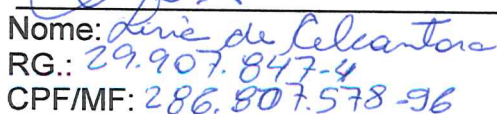 Nome: Livia de Alcantara
RG.: 29.907.847-4
CPF/MF: 286.807.578-96